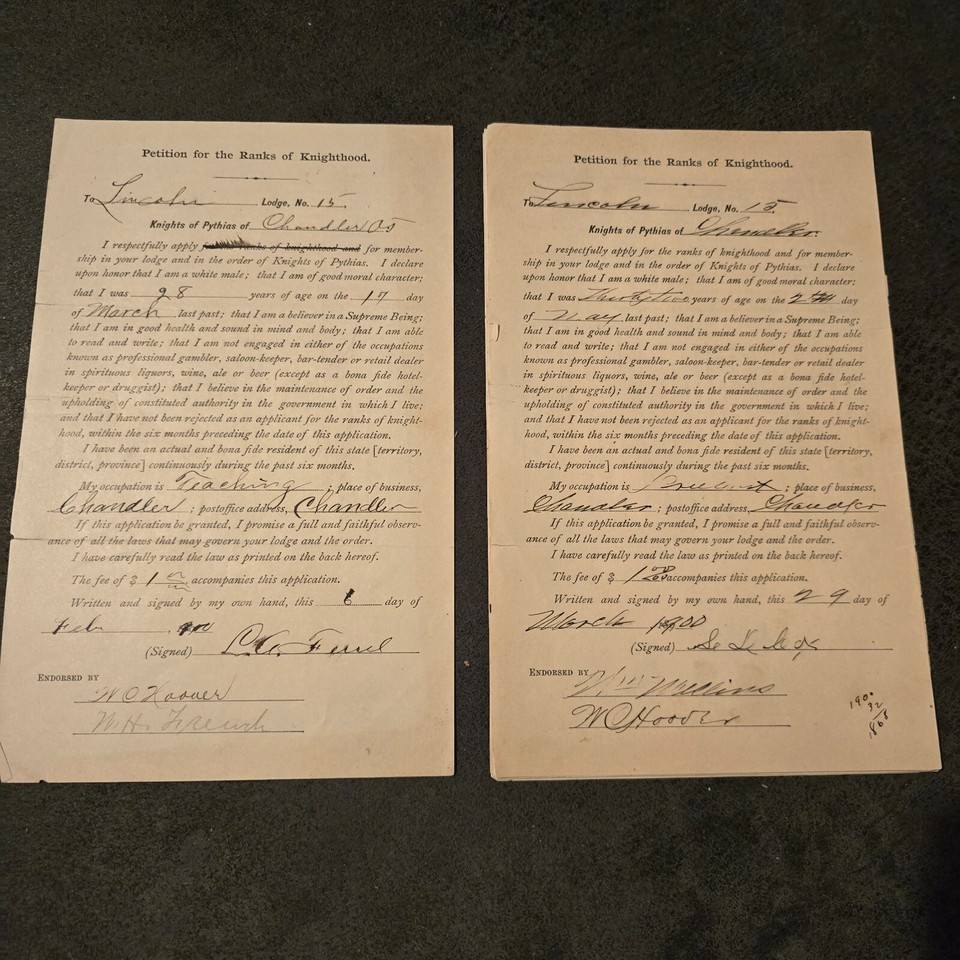 Petition for the Ranks of Knighthood.
To Lincoln Lodge, No. 15.
Knights of Pythias of Chandler
I respectfully apply for the ranks of knighthood and for member-
ship in your lodge and in the order of Knights of Pythias. I declare
upon honor that I am a white male; that I am of good moral character;
that I was 28 years of age on the 17 day
of March last past; that I am a believer in a Supreme Being;
that I am in good health and sound in mind and body; that I am able
to read and write; that I am not engaged in either of the occupations
known as professional gambler, saloon-keeper, bar-tender or retail dealer
in spirituous liquors, wine, ale or beer (except as a bona fide hotel-
keeper or druggist); that I believe in the maintenance of order and the
upholding of constituted authority in the government in which I live;
and that I have not been rejected as an applicant for the ranks of knight-
hood, within the six months preceding the date of this application.
I have been an actual and bona fide resident of this state [territory,
district, province] continuously during the past six months.
My occupation is Teaching ; place of business,
Chandler ; postoffice address, Chandler
If this application be granted, I promise a full and faithful observ-
ance of all the laws that may govern your lodge and the order.
I have carefully read the law as printed on the back hereof.
The fee of $ 1 accompanies this application.
Written and signed by my own hand, this 6 day of
Feb
(Signed) Ferrel
Endorsed by
W C Hoover
W. H. French
Petition for the Ranks of Knighthood.
To Lincoln Lodge, No. 15.
Knights of Pythias of Chandler
I respectfully apply for the ranks of knighthood and for member-
ship in your lodge and in the order of Knights of Pythias. I declare
upon honor that I am a white male; that I am of good moral character;
that I was Thirty two years of age on the day
of May last past; that I am a believer in a Supreme Being;
that I am in good health and sound in mind and body; that I am able
to read and write; that I am not engaged in either of the occupations
known as professional gambler, saloon-keeper, bar-tender or retail dealer
in spirituous liquors, wine, ale or beer (except as a bona fide hotel-
keeper or druggist); that I believe in the maintenance of order and the
upholding of constituted authority in the government in which I live;
and that I have not been rejected as an applicant for the ranks of knight-
hood, within the six months preceding the date of this application.
I have been an actual and bona fide resident of this state [territory,
district, province] continuously during the past six months.
My occupation is ; place of business,
Chandler ; postoffice address, Chandler
If this application be granted, I promise a full and faithful observ-
ance of all the laws that may govern your lodge and the order.
I have carefully read the law as printed on the back hereof.
The fee of $ 1 accompanies this application.
Written and signed by my own hand, this 29 day of
March 1900
(Signed)
Endorsed by
W C Hoover
1900
32
1868